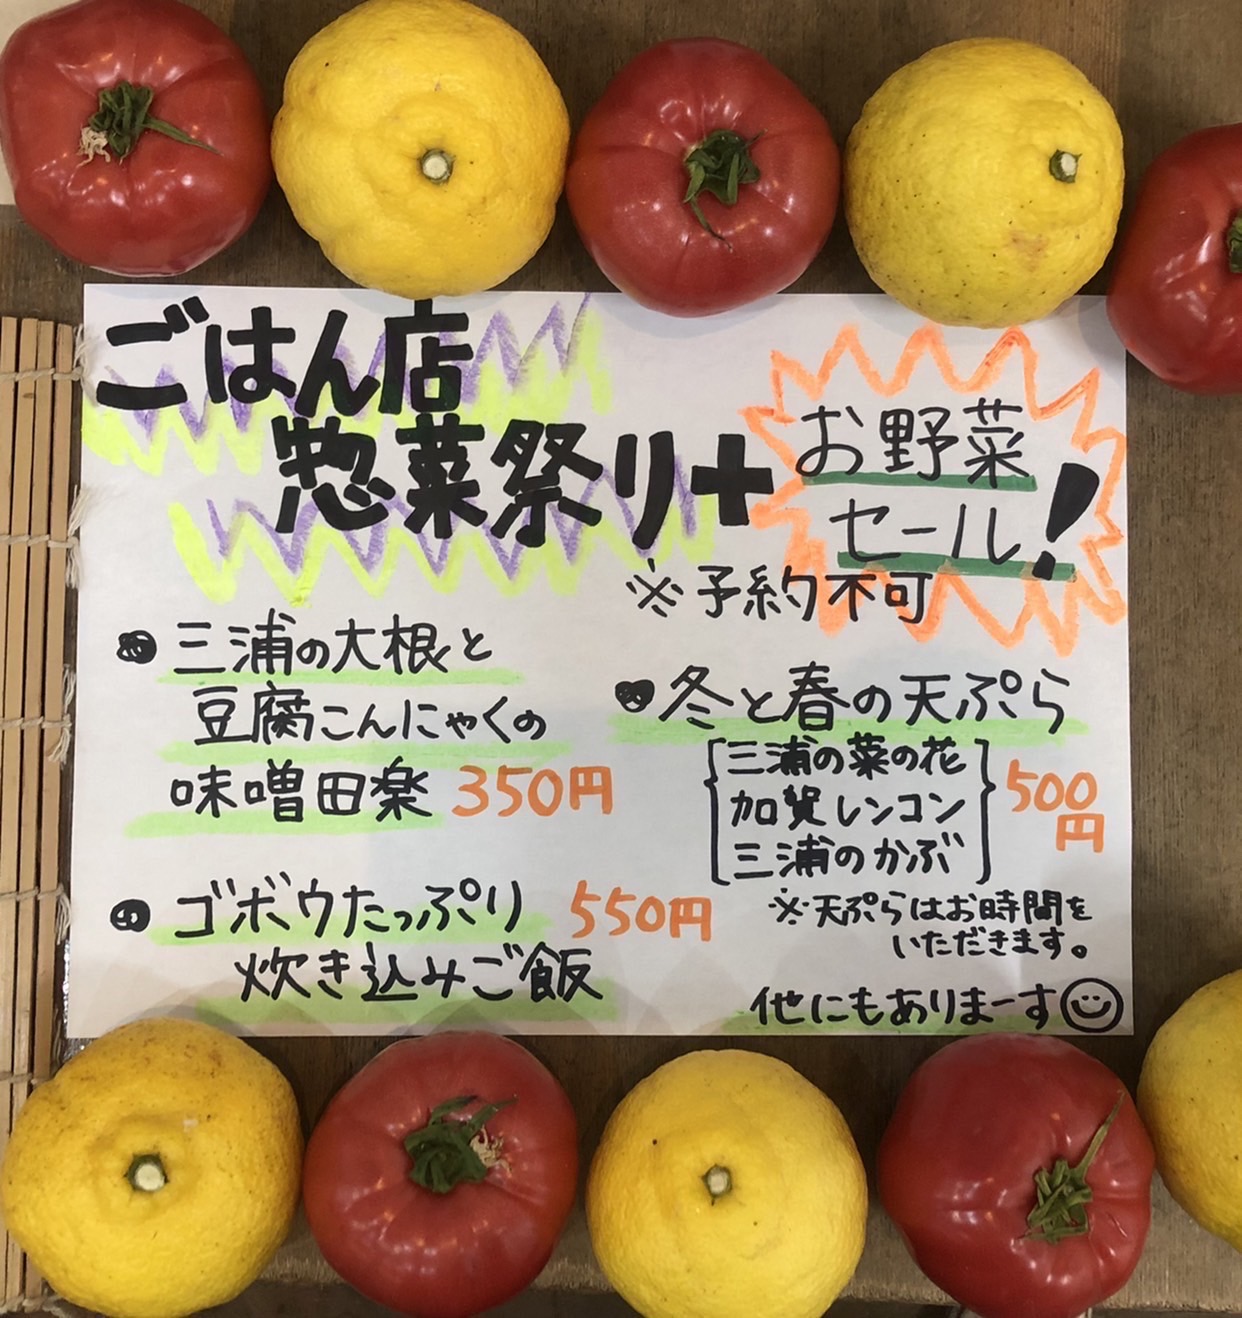 ごはん店
惣菜祭り+
お野菜
セール!
※予約不可
三浦の大根と
豆腐こんにゃくの
味噌田楽 350円
ゴボウたっぷり 550円
炊き込みご飯
冬と春の天ぷら
三浦の菜の花
加賀レンコン
三浦のかぶ
500
円
※天ぷらはお時間を
いただきます。
他にもありまーす